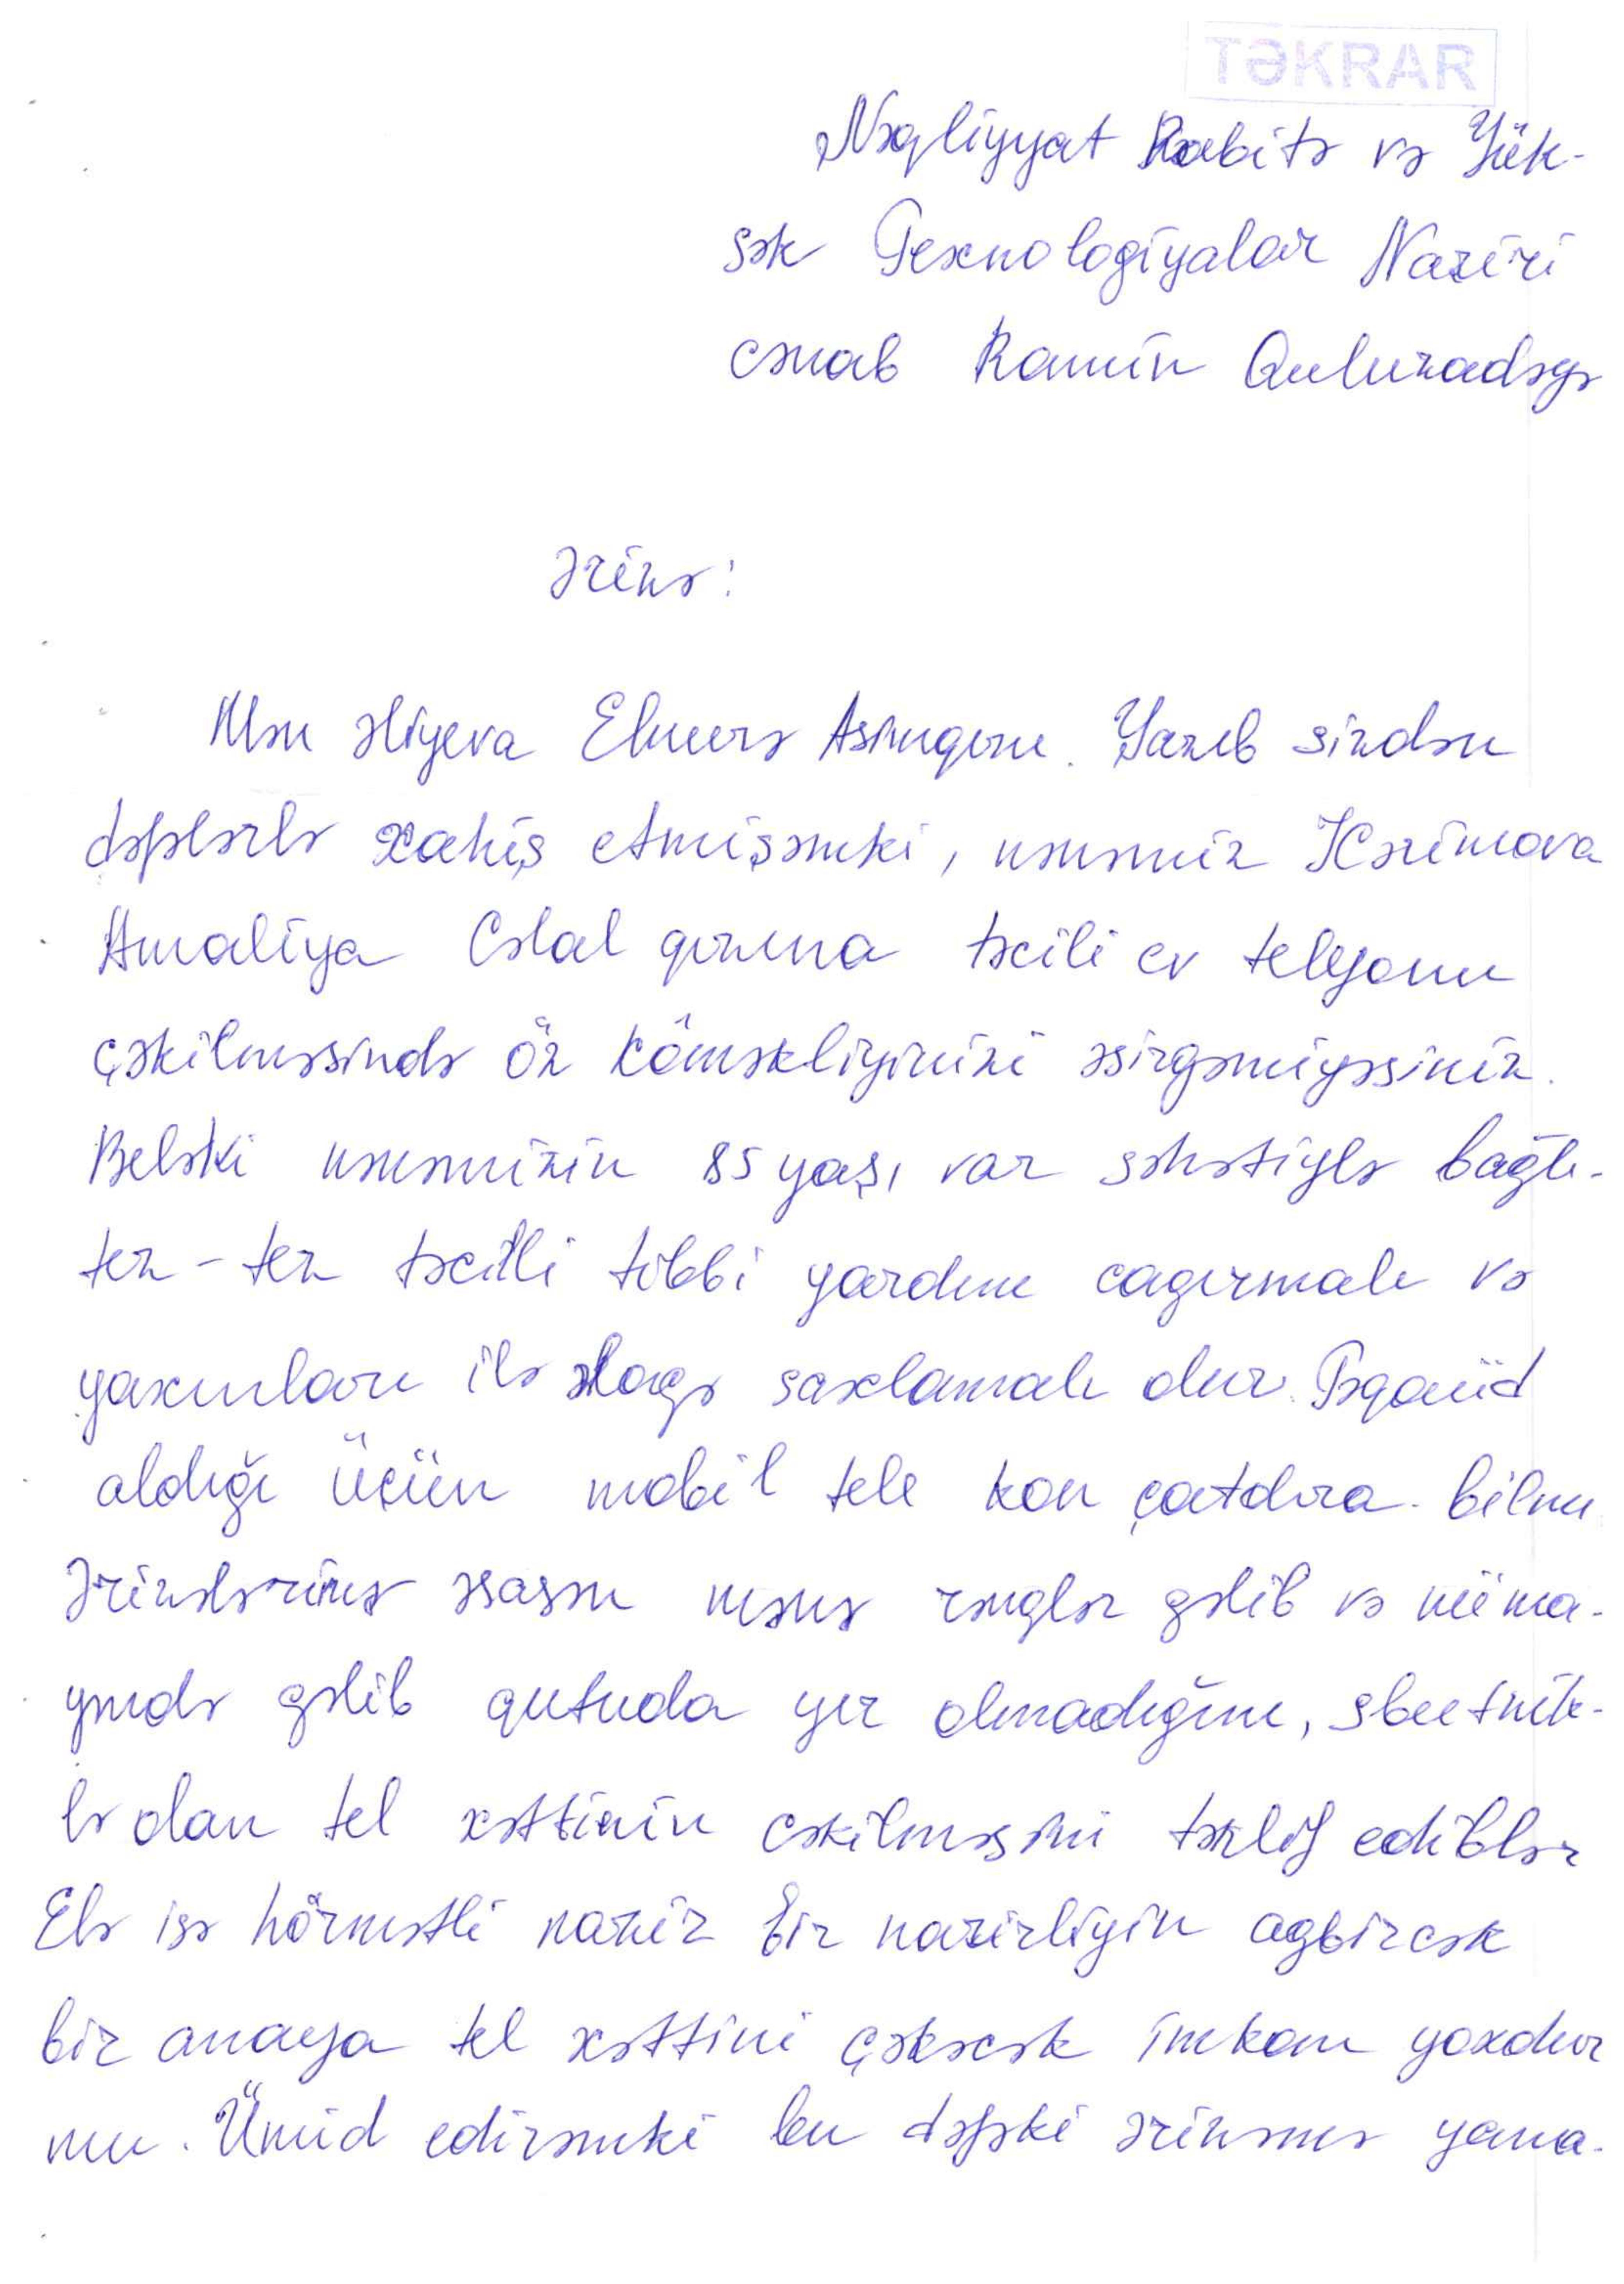 TƏKRAR
Nəqliyyat Rabitə və Yük-
sək Texnologiyalar Naziri
cənab Ramin Quluzadəyə
Ərizə:
Mən Əliyeva Elmirə Asimqızı. Yazıb sizdən
dəfələrlə xahiş etmişəmki, nənəmiz Kərimova
Amaliya Cəlal qızına təcili ev telefonu
çəkilməsində öz köməkliyinizi əsirgəmiyəsiniz.
Beləki nənəmizin 85 yaşı var səhətiylə bağlı-
tez-tez təcili tibbi yardım cagırmalı və
yaxınları ilə əlaqə saxlamalı olur. Təqaüd
aldığı üçün mobil tele kon çatdıra bilmi
Ərizələrimə əsasən mənə zənglər gəlib və nüma-
yəndə gəlib qutuda yer olmadığını,
lə olan tel xəttinin cəkilməsini təklif ediblər
Elə isə hörmətli nazir bir nazirliyin agbircək
bir anaya tel xəttini çəkəcək imkanı yoxdur
mu. Ümid edirəmki bu dəfəki ərizəmə yana-